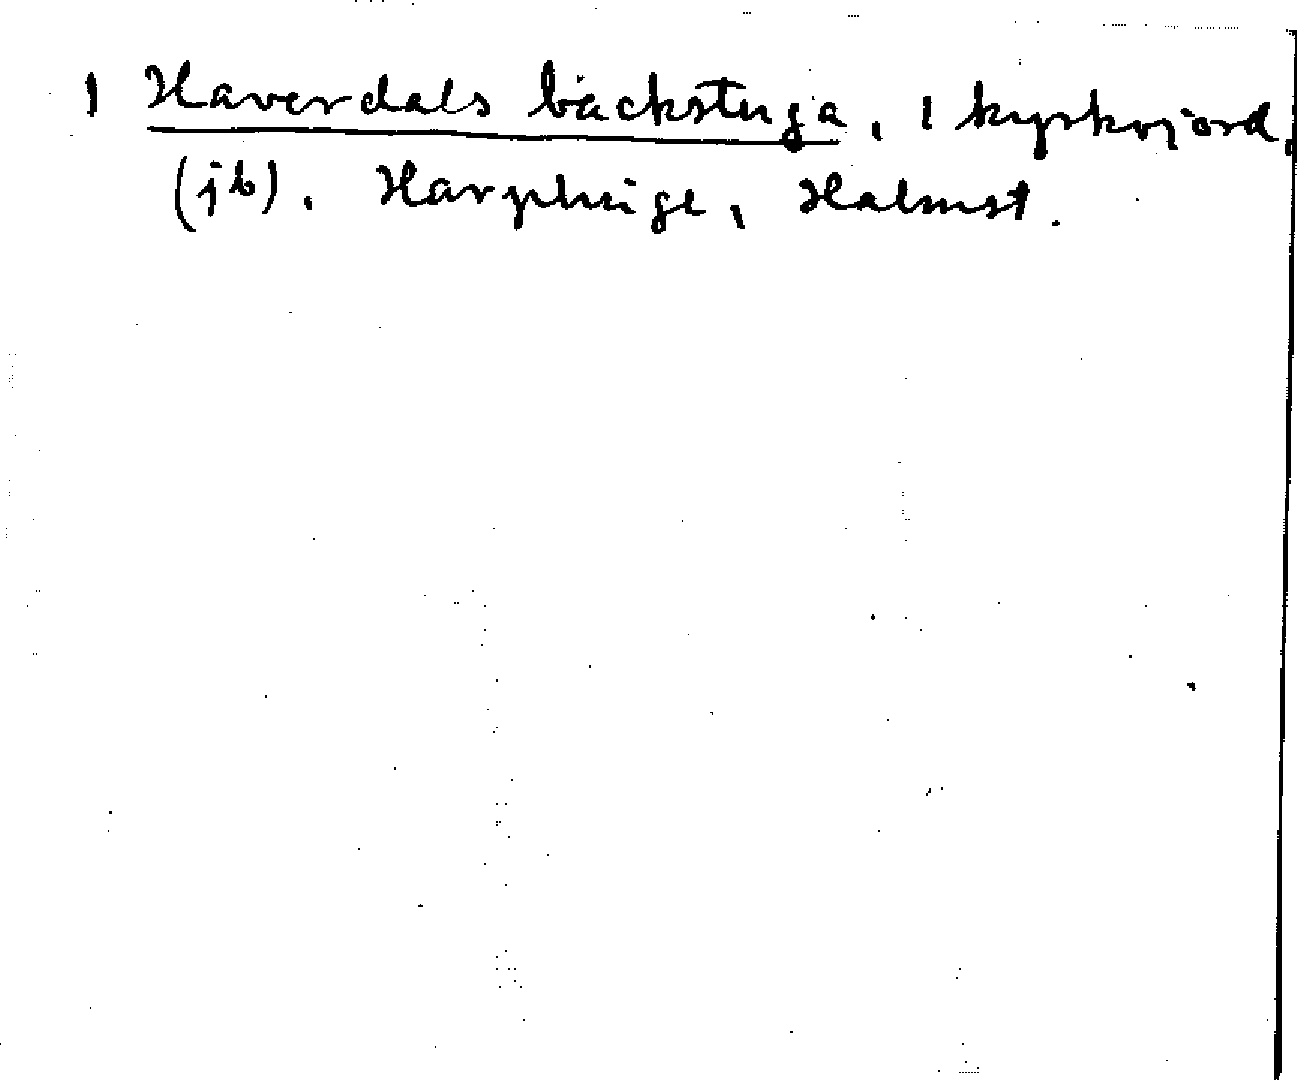 1 Haverdals backstuga, 1 kyrkojord,
(jb). Harplinge, Halmst.